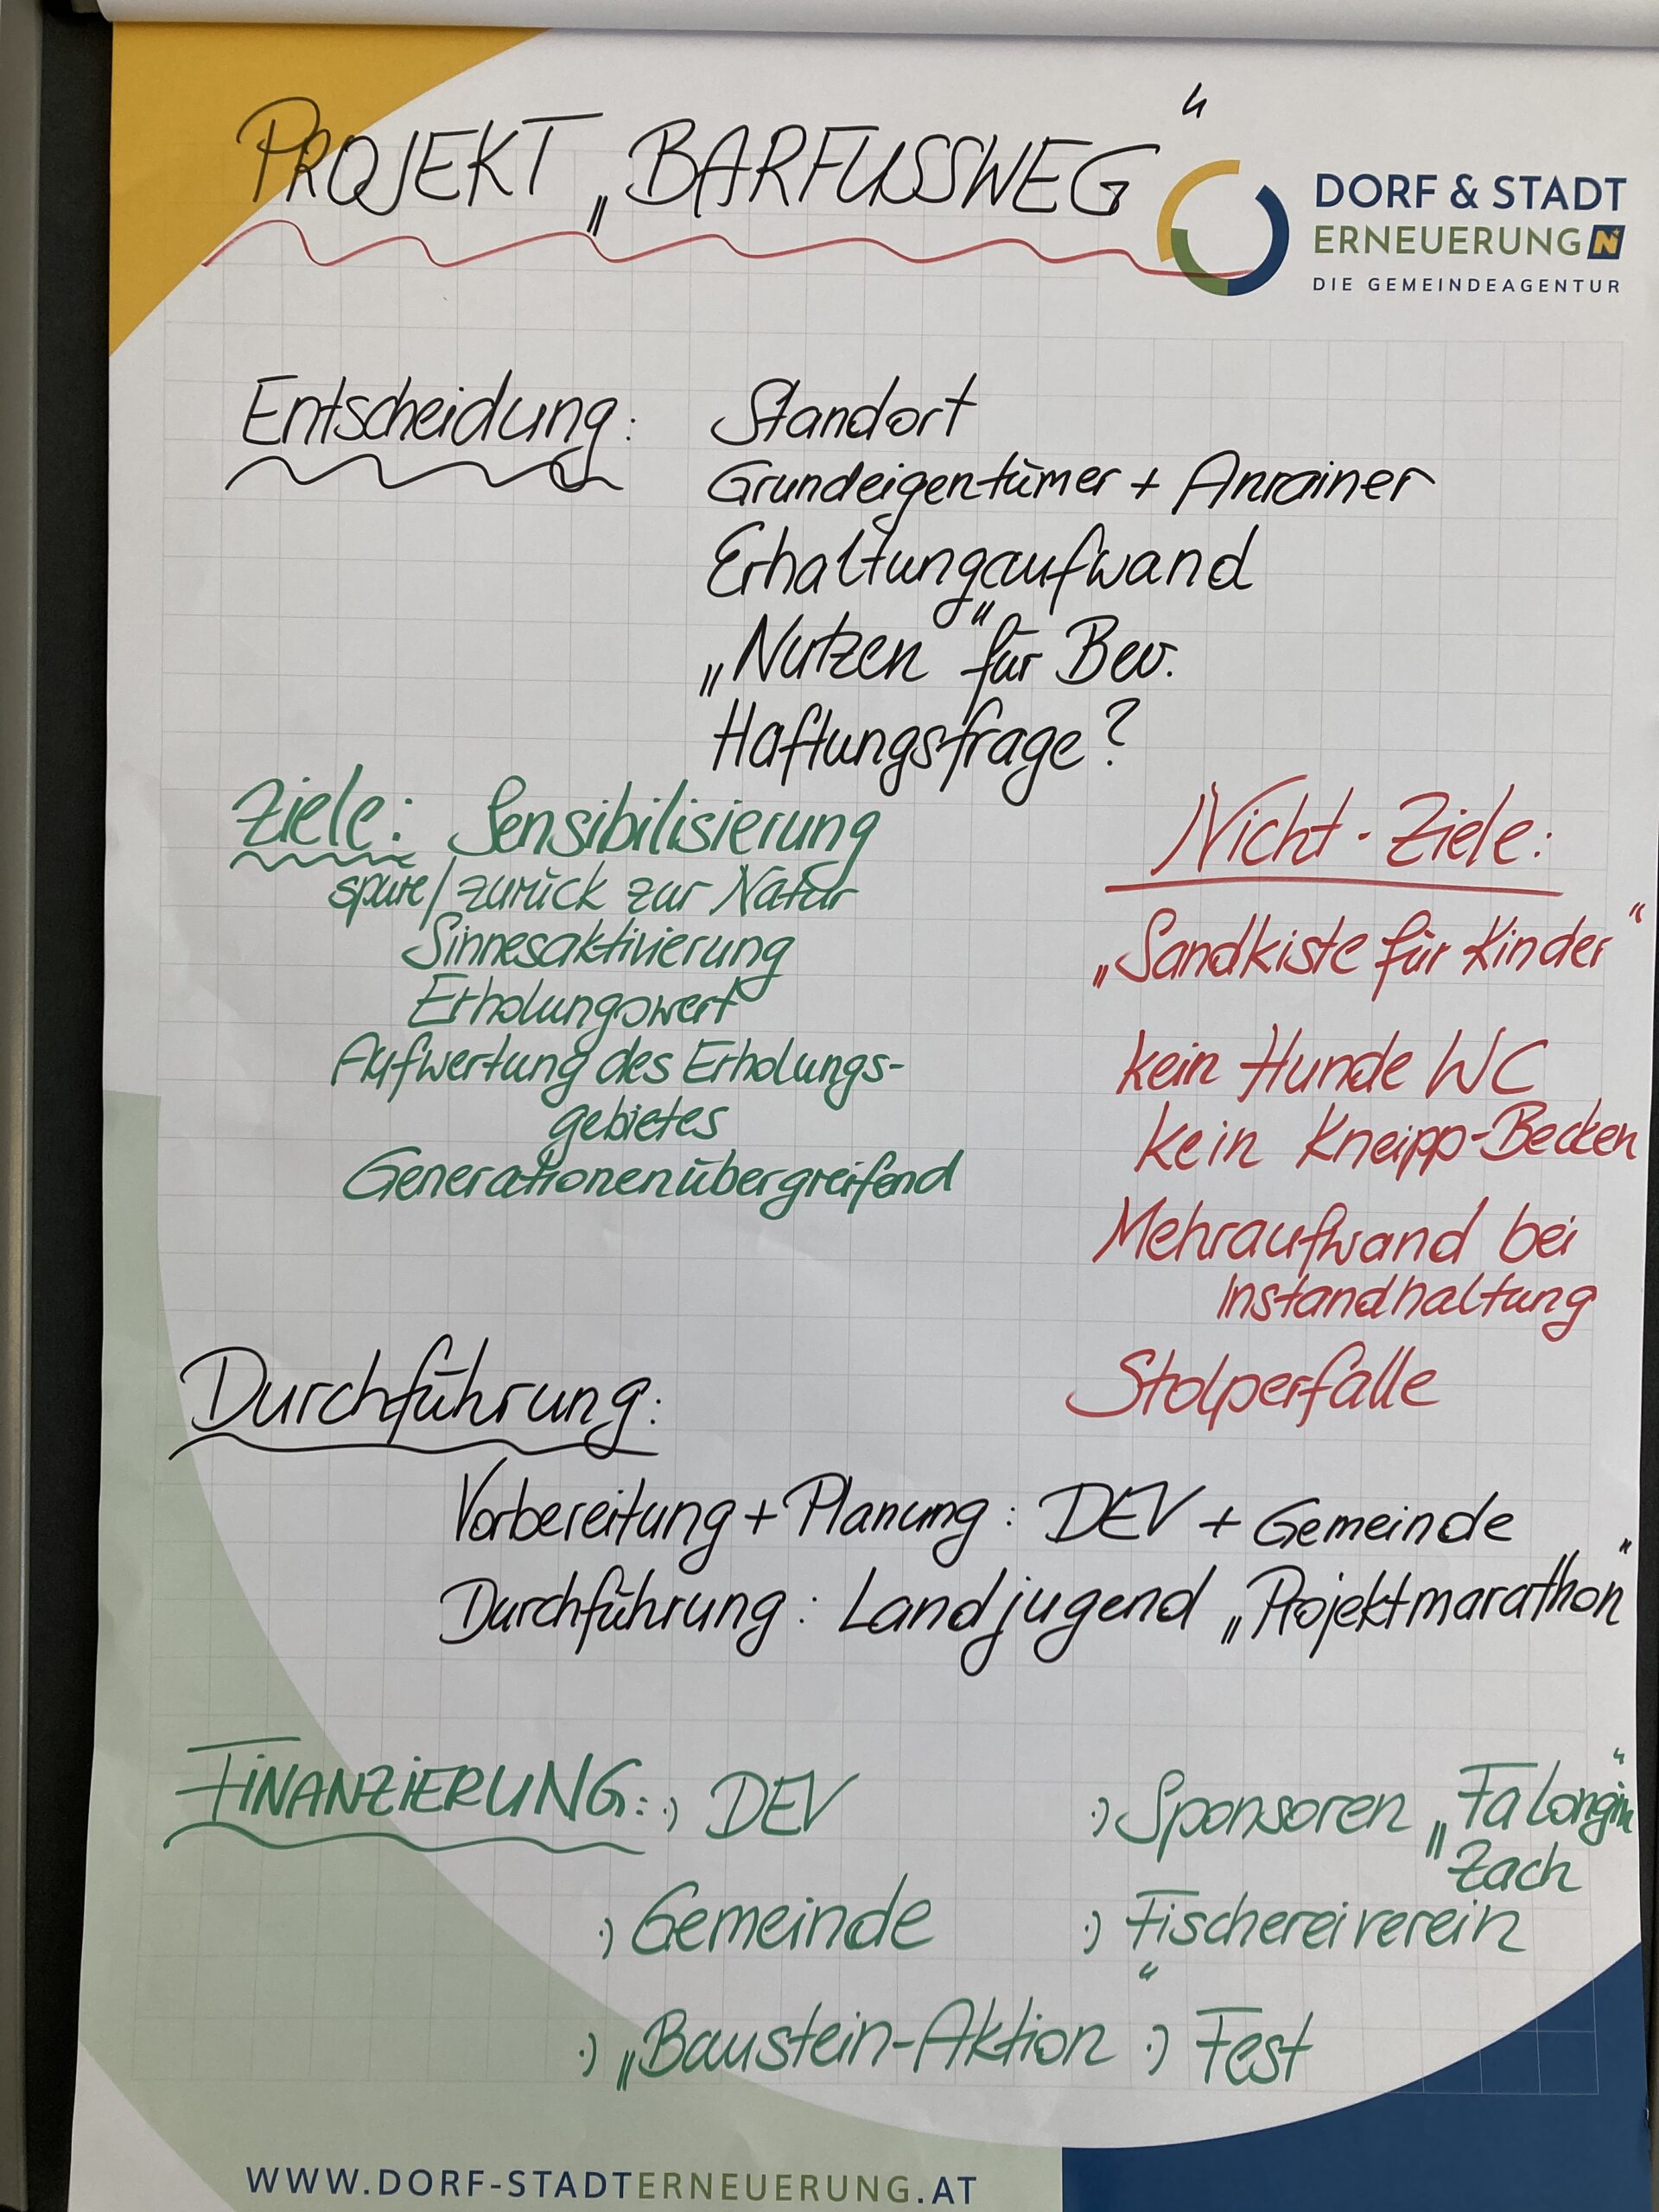 PROJEKT „BARFUSSWEG“
DORF & STADT
ERNEUERUNG N
DIE GEMEINDEAGENTUR
Entscheidung: Standort
Grundeigentümer + Anrainer
Erhaltungaufwand
„Nutzen“ für Bev.
Haftungsfrage?
Ziele: Sensibilisierung
spüre/zurück zur Natur
Sinnesaktivierung
Erholungswert
Aufwertung des Erholungs-
gebietes
Generationenübergreifend
Nicht-Ziele:
„Sandkiste für Kinder“
kein Hunde WC
kein Kneipp-Becken
Mehraufwand bei
Instandhaltung
Stolperfalle
Durchführung:
Vorbereitung + Planung: DEV + Gemeinde
Durchführung: Landjugend „Projektmarathon“
FINANZIERUNG: ·) DEV ·) Sponsoren „Fa Longin“
Zach
·) Gemeinde ·) Fischereiverein
·) „Baustein-Aktion“ ·) Fest
WWW.DORF-STADTERNEUERUNG.AT